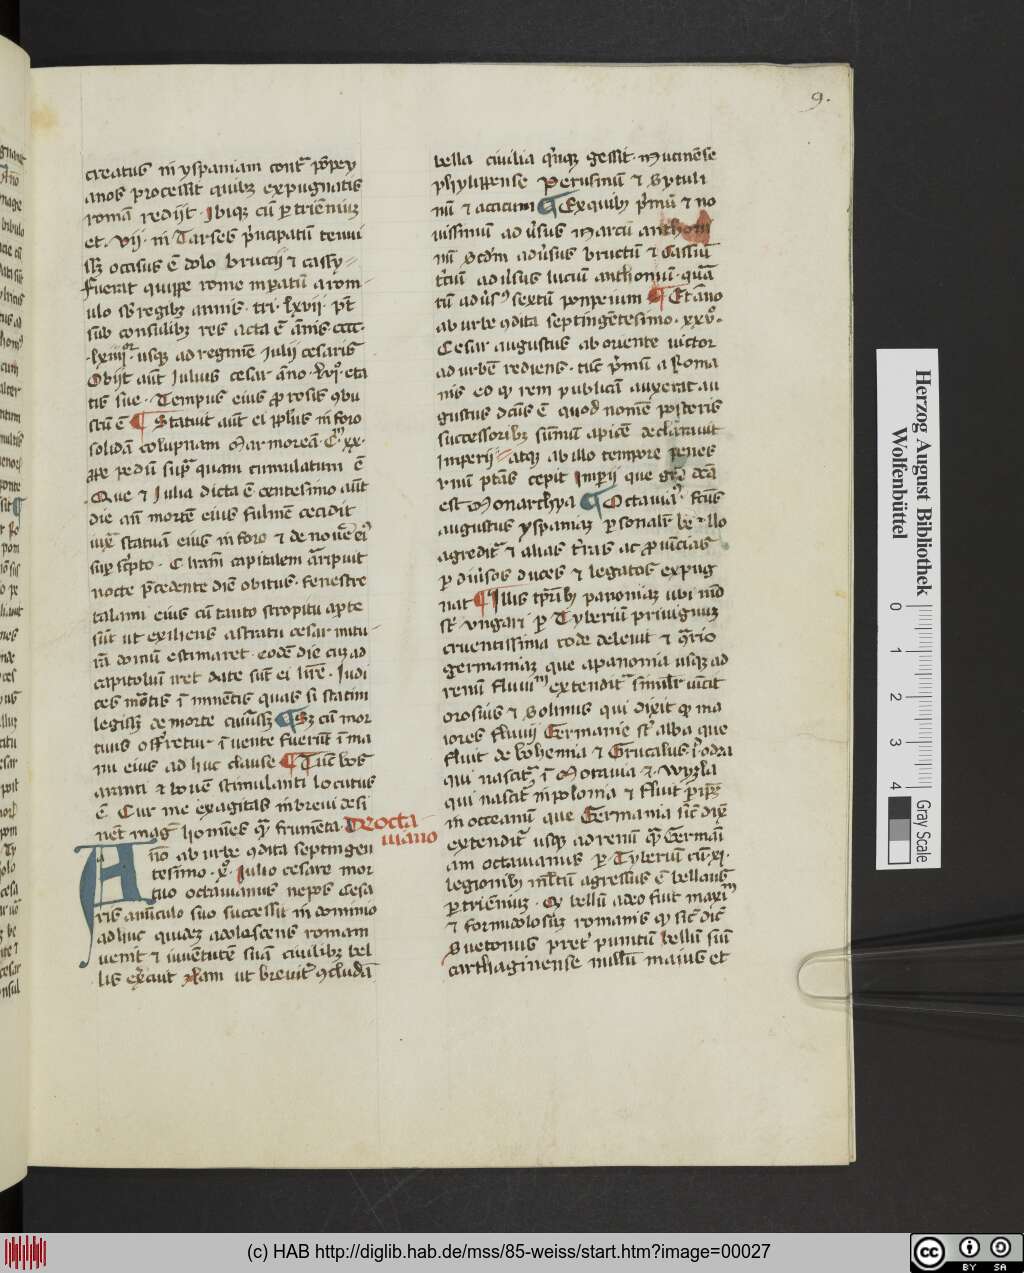 9.
creatus in yspaniam contra pompey
anos processit quibus expugnatis
romam redijt. Ibique cum per triennium
et. vij. in Tarses principatum tenui
sset occisus est dolo bructi et cassy
fuerat quippe rome imperatum a rom
ulo sub regibus annis. tri. lxvij. post
sub consulibus res acta est annis cccc.
lxiiijor. usque ad regimen Julij cesaris
Obijt autem Julius cesar anno. lvjo. eta
tis sue. Tempus eius
stum est ¶ Statuit autem ei populus in foro
solidam columpnam marmoream. xx.
pedum supra quam tumulatum est
Que et Julia dicta est centesimo autem
die ante mortem eius fulmen cecidit
iuxta statuam eius in foro et de nomine eius
super scripto. C litteram capitalem arripuit
nocte precedente diem obitus. fenestre
talami eius cum tanto strepitu aperte
sunt ut exiliens a stratu cesar ruitu
ram domum estimaret. eodem die cum ad
capitolium iret date sunt ei littere. Judi
ces mortis imminentis quas si statim
legisset de morte euasisset ¶ Sed cum mor
tuus offerretur inuente fuerunt in ma
nu eius adhuc clause ¶ Tunc bos
aranti et bouem stimulanti locutus
est Cur me exagitas in breui desi
nent magis homines quam frumenta. De octa
uiano
Anno ab urbe condita septingen
tesimo. xo. Julio cesare mor
tuo octauianus nepos Cesa
ris auunculo suo successit in dominio
adhuc quidem adolescens romam
uenit et iuuentutem suam ciuilibus bel
lis exercuit Nam ut breuiter concludam
bella ciuilia quinque gessit. Mutinense
phylippense Perusinum et Syculi
num et acticum ¶ Ex quibus primum et no
uissimum aduersus Marcum anthoni
um secundum aduersus brutum et Cassium
tertium aduersus lucium anthonium. quar
tum aduersus sextum pompeium ¶ Et anno
ab urbe condita septingentesimo. xxvo.
Cesar augustus ab oriente uictor
ad urbem rediens. tunc primum a Roma
nis eo quod rem publicam auxerat au
gustus dictus est quod nomen posteris
successoribus summum apicem declarauit
Imperij atque ab illo tempore penes
unum potestas cepit Imperij que grece dicta
est Monarchya ¶ Octauianus. secundus
augustus yspanias personali bello
agreditur et alias terras ac prouincias
per diuersos duces et legatos expug
nat ¶ Illis temporibus panonias ubi nunc
sunt vngari per Tyberium priuignum
cruentissima cede deleuit et
germanias que a panonia usque ad
renum fluuium extenditur similiter uicit
orosius et Solinus qui dixit quod ma
iores fluuij Germanie sunt alba que
fluit de bohemia et Gutalus id est odra
qui nascitur in Morauia et. Wyzla
qui nascitur in polonia et fluit
in occeanum que Germania sicut
extenditur usque ad renum quam Germani
am octauianus per Tyberium cum. xj.
legionibus multum agressus est bellans
per triennium. Quod bellum adeo fuit maximum
et formidolosum romanis quod sicut dicit
Suetonius preter punicum bellum siue
carthaginense nullum maius et
Herzog August Bibliothek
Wolfenbüttel
0 1 2 3 4
Gray Scale
(c) HAB http://diglib.hab.de/mss/85-weiss/start.htm?image=00027
cc BY SA